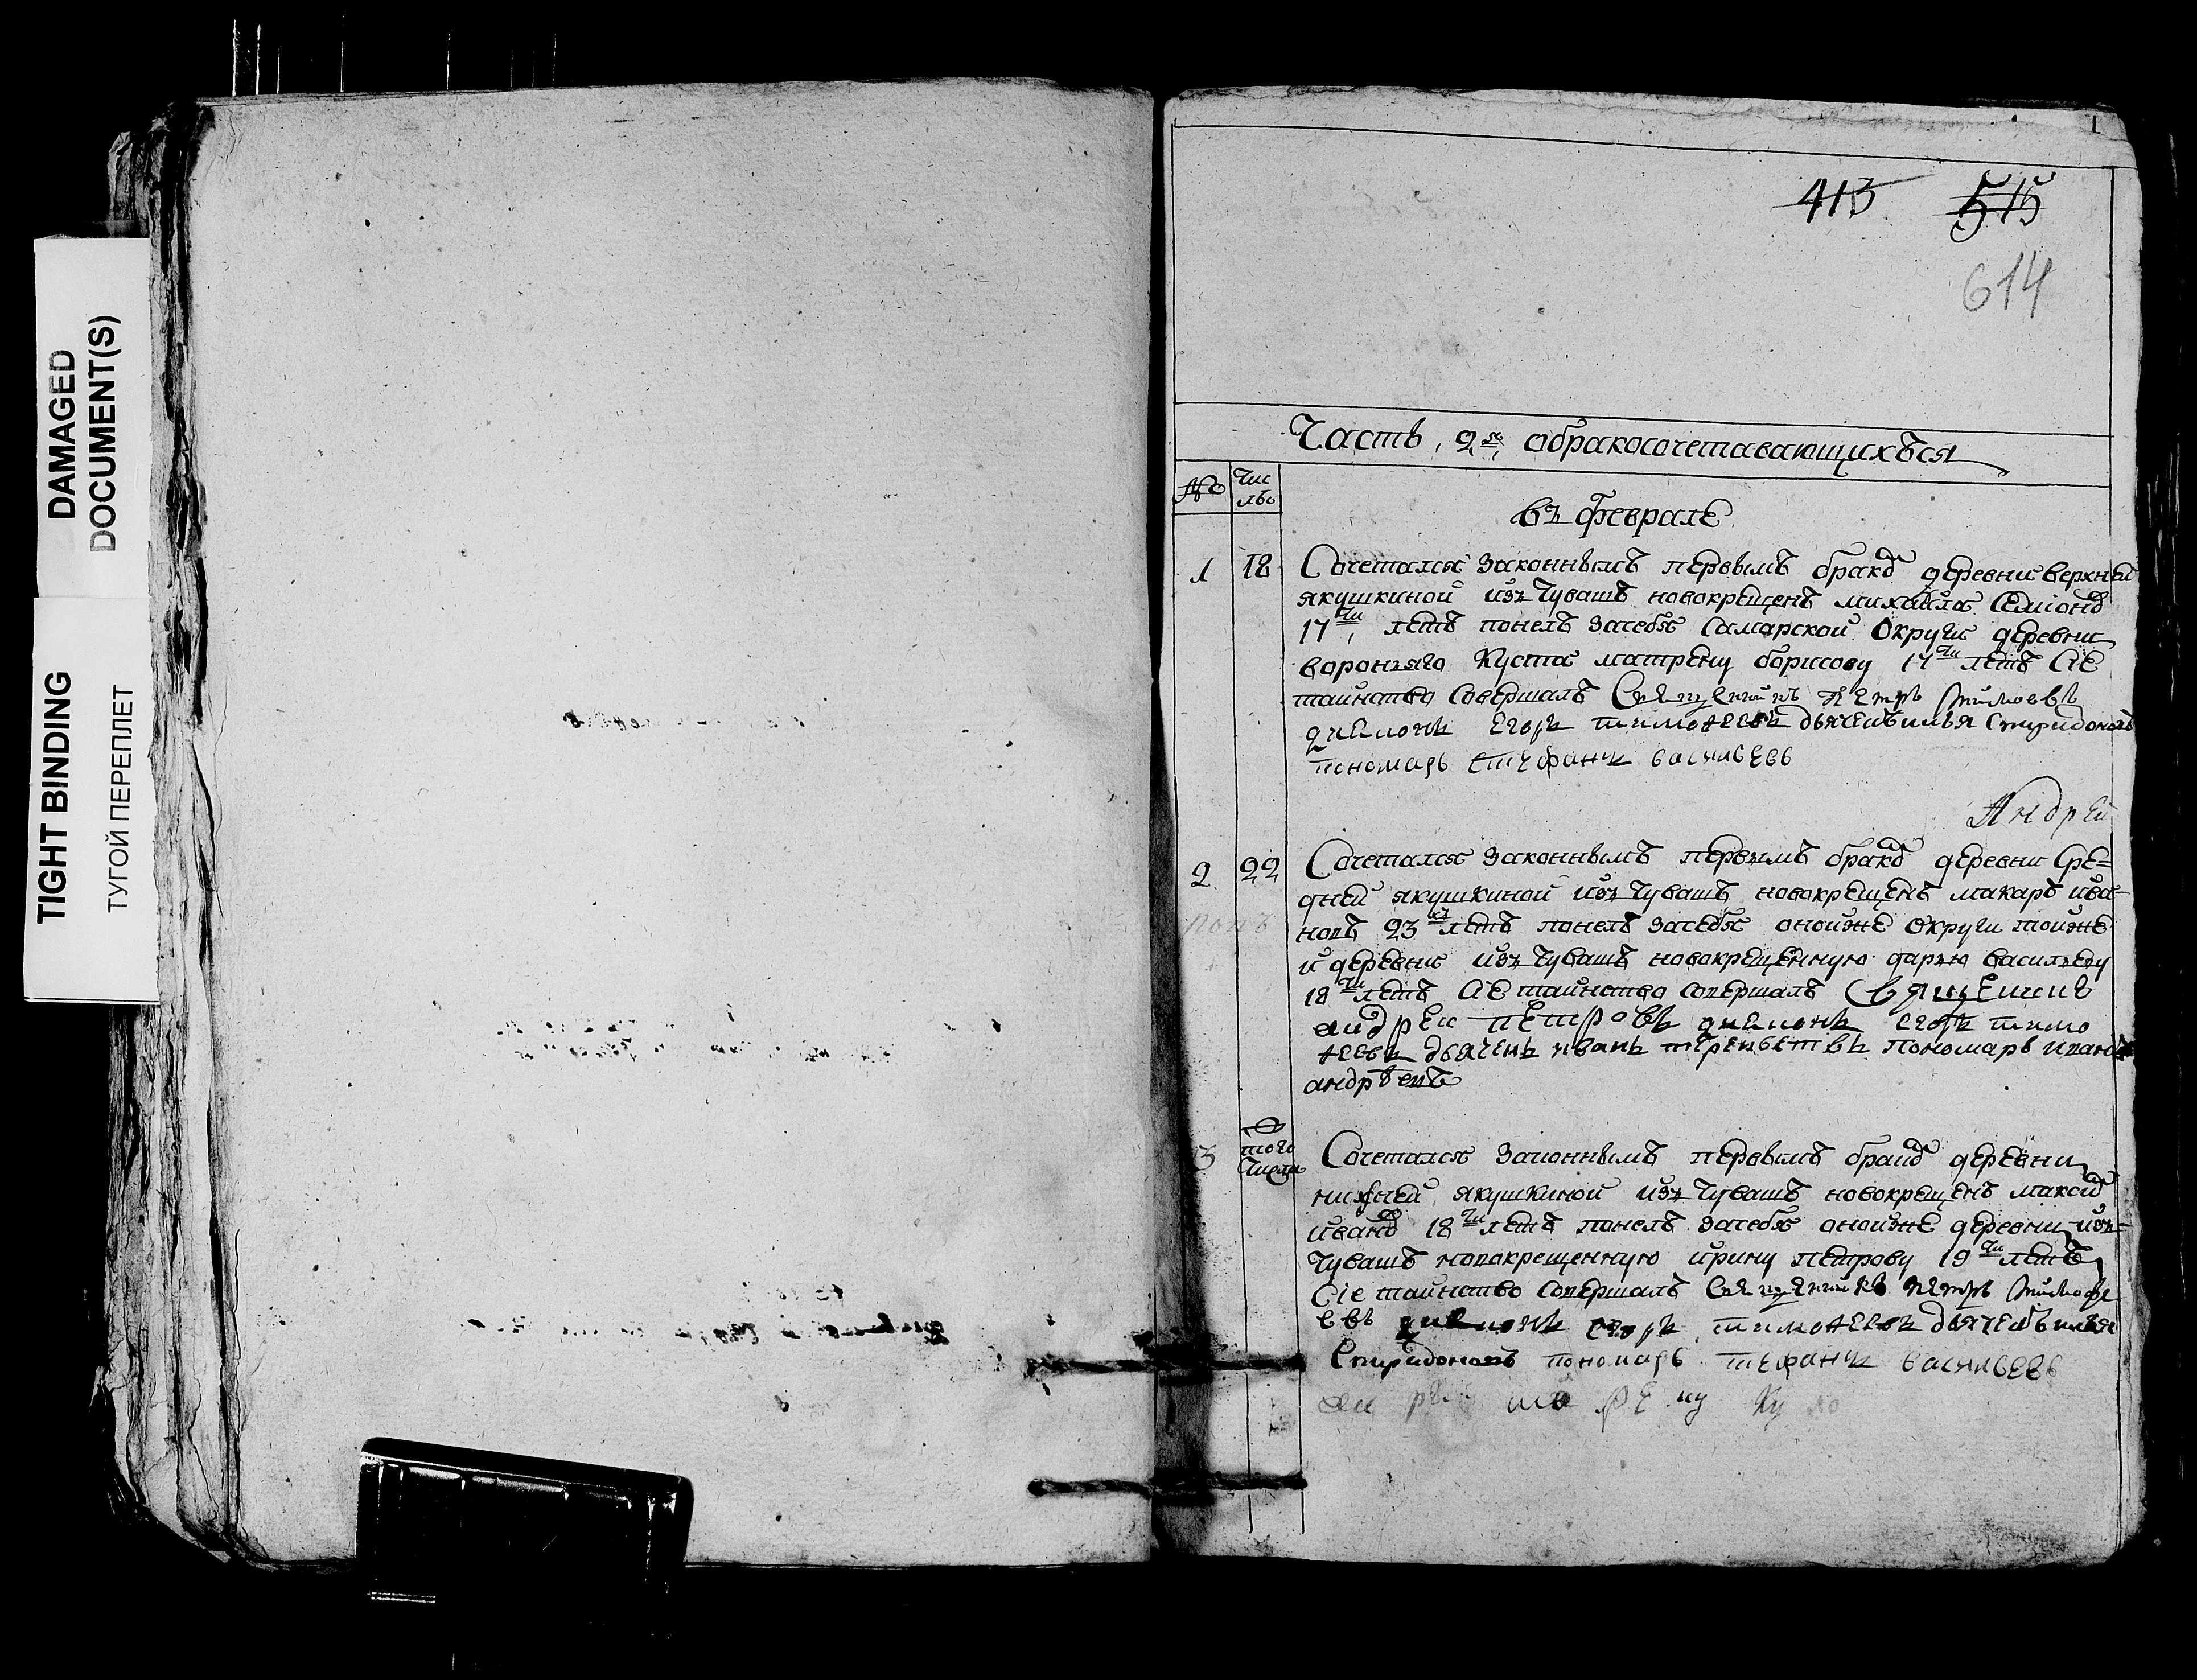 DAMAGED
DOCUMENT(S)
TIGHT BINDING
ТУГОЙ ПЕРЕПЛЕТ
1
413 515
614
Часть, 2я, обракосочетавающихъся
№ Чис
льо
въ феврале
1 18 Сочетался законнымъ первымъ бракѡ деревни верхней
якушкиной изъ Чувашъ новокрещенъ михайла Семіонѡ
17ти, летъ понелъ засебя Самарской Округи деревни
вороняго Куста матрену борисову 17ти летъ Сїе
таинство Совершалъ Священникъ Петръ
диаконъ Егоръ тимофеевъ дьячекъ илья Спиридоновъ
пономарь Стефанъ васильевъ
Андрей
2 22 Сочетался законнымъ первымъ бракѡ деревни Сре=
дней якушкиной изъ Чувашъ новокрещенъ макаръ ива-
новъ 23хъ летъ понелъ засебя оноиже Округи тоиже
и деревни изъ Чувашъ новокрещенную дарью василеву
попъ
18ти летъ Сїе таинство совершалъ Священикъ
андреи петровъ диаконъ егоръ тимо
феевъ дьячекъ иванъ терентьевъ пономарь иванъ
андрѣевъ
3 того
Числа Сочетался законнымъ первымъ бракѡ деревни
нижней якушкиной изъ Чувашъ новокрещенъ максиѡ
иванѡ 18ти летъ понелъ засебя оноиже деревни изъ=
Чувашъ новокрещенную ирину петрову 19ти летъ
Сїе таинство совершалъ Священникъ петръ тимофе
евъ диаконъ егоръ тимофеевъ дьячекъ илья
Спиридоновъ пономарь стефанъ васильевъ